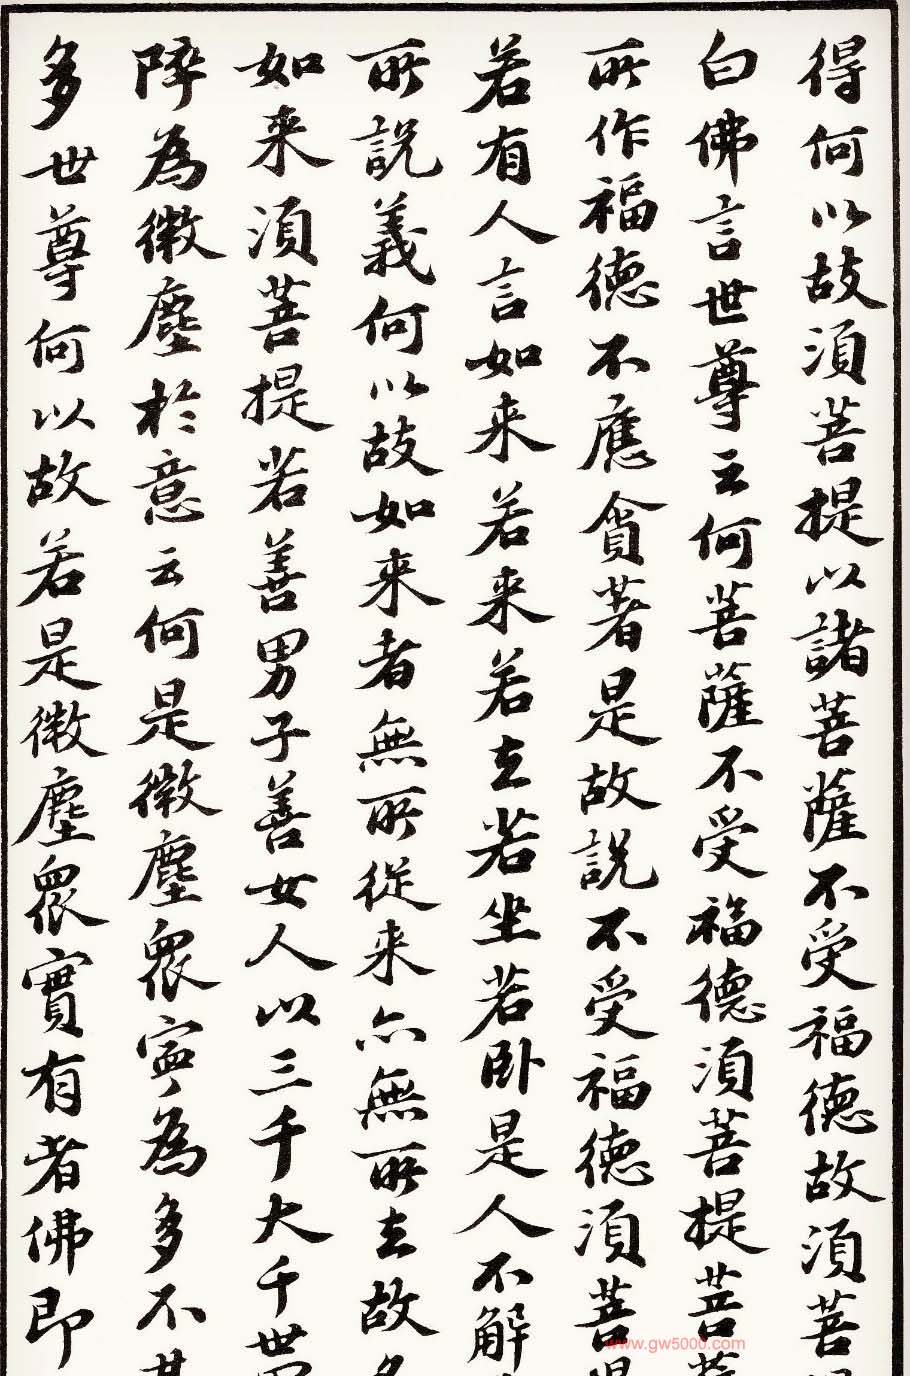 得何以故須菩提以諸菩薩不受福德故須菩
白佛言世尊云何菩薩不受福德須菩提菩
所作福德不應貪著是故說不受福德須菩
若有人言如来若来若去若坐若卧是人不解
所說義何以故如来者無所從来亦無所去故
如来須菩提若善男子善女人以三千大千世
碎為微塵於意云何是微塵眾寧為多不
多世尊何以故若是微塵眾實有者佛即
www.gw5000.com